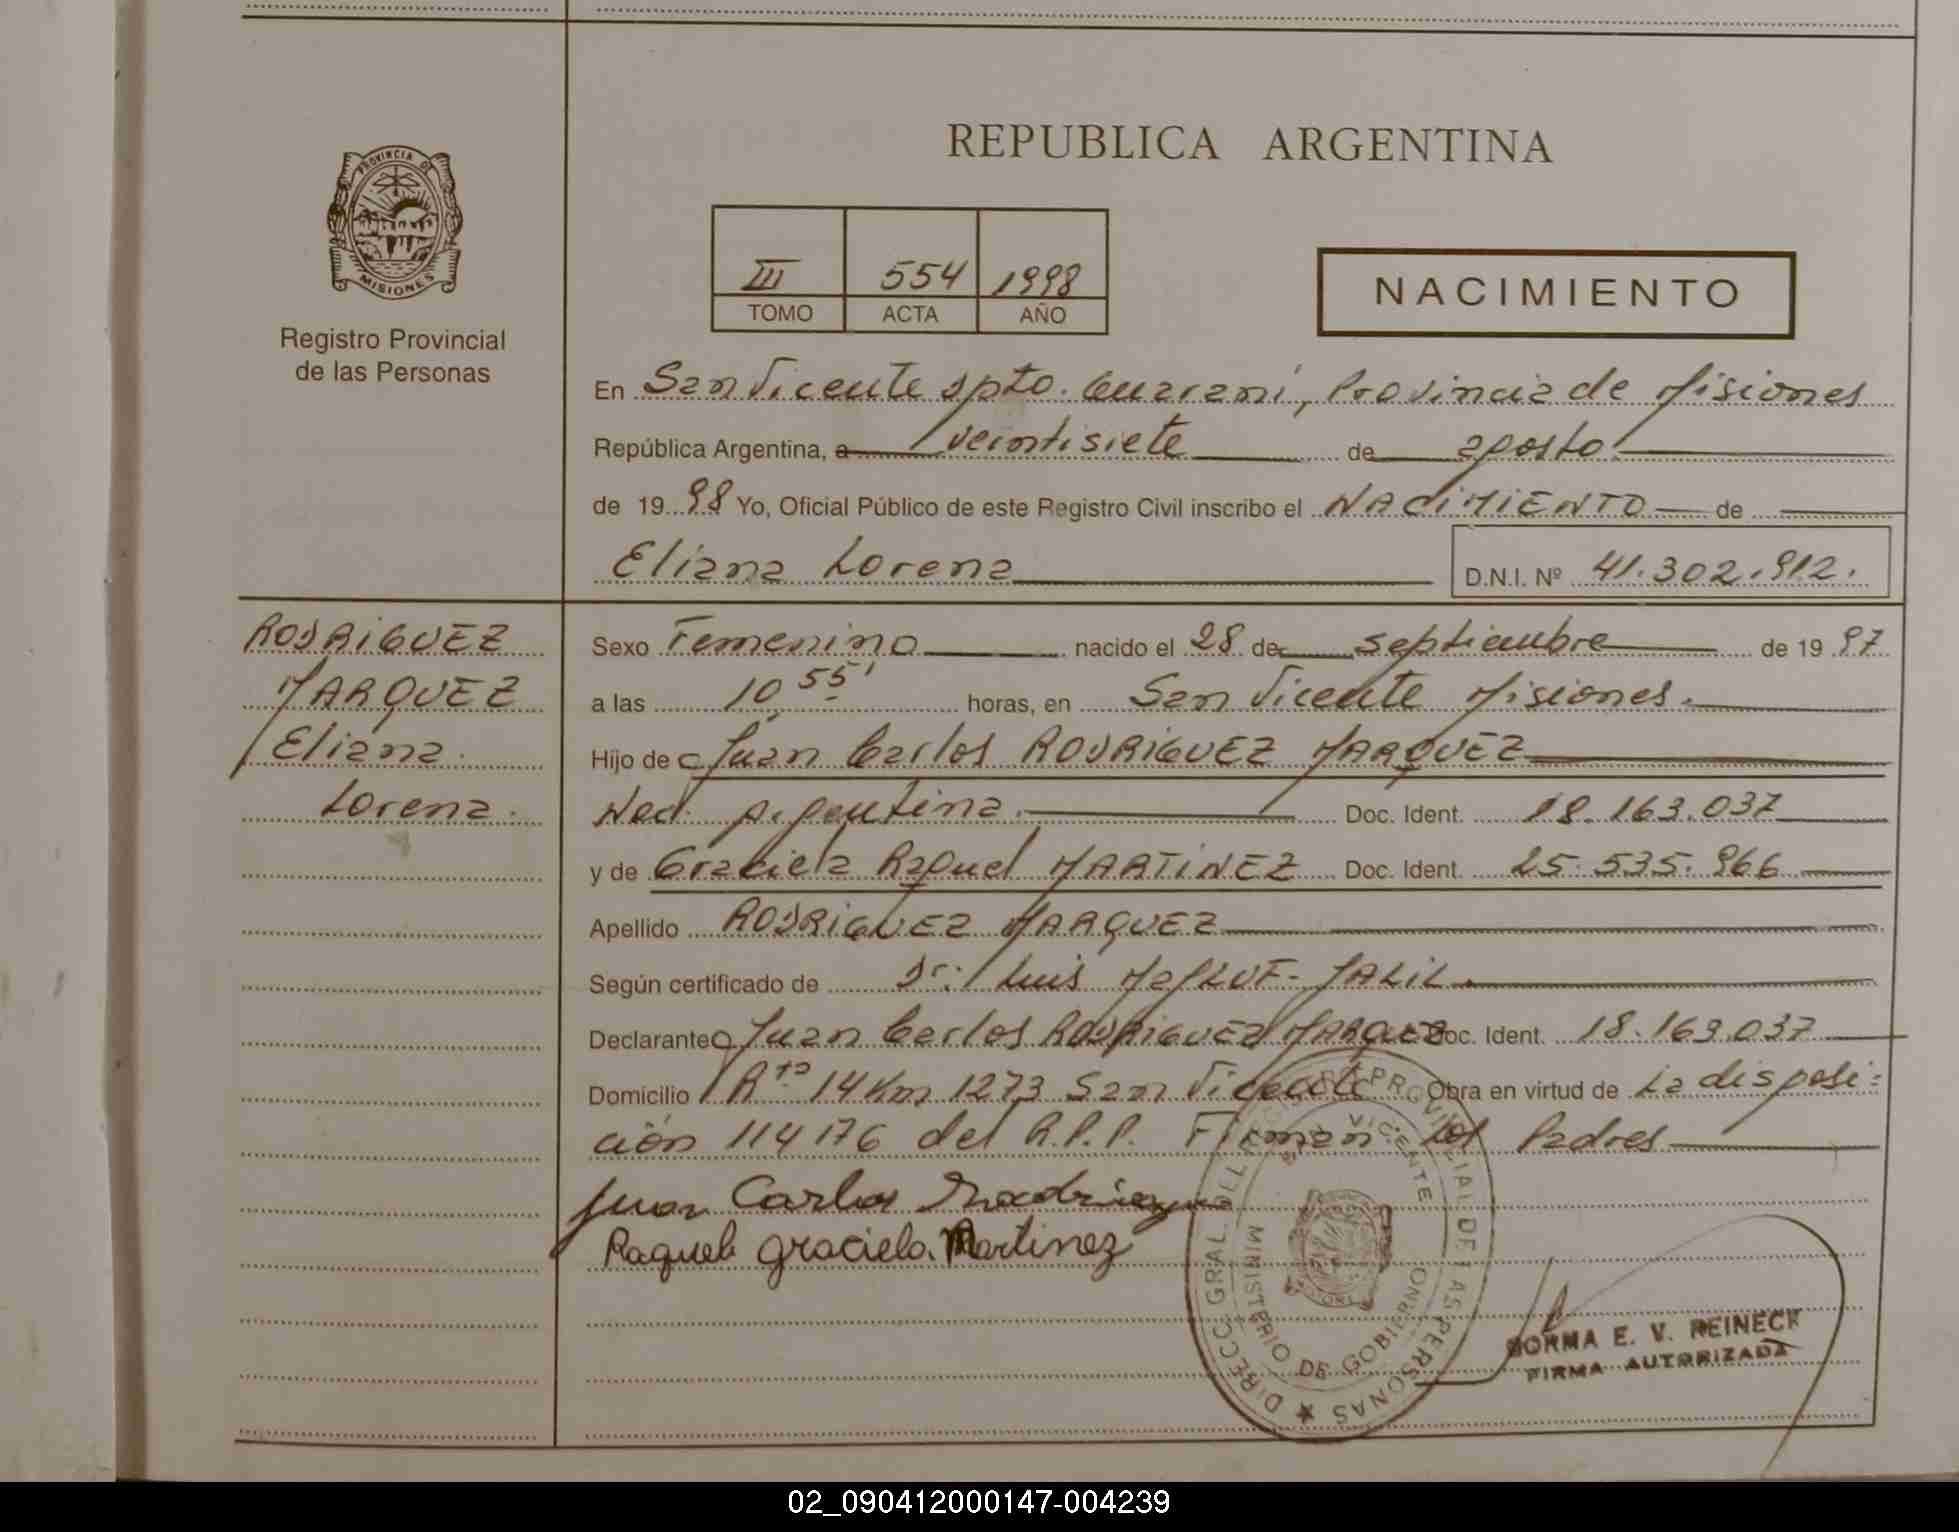 REPUBLICA ARGENTINA
PROVINCIA DE
MISIONES
Registro Provincial
de las Personas
III 554 1998
TOMO ACTA AÑO
NACIMIENTO
En San Vicente Dpto. Guaraní, Provincia de Misiones
República Argentina, a veintisiete de agosto
de 1998 Yo, Oficial Público de este Registro Civil inscribo el NACIMIENTO de
Eliana Lorena D.N.I. Nº 41.302.912.
RODRIGUEZ
MARQUEZ
Eliana
Lorena.
Sexo Femenino nacido el 28 de septiembre de 1997
a las 10,55' horas, en San Vicente Misiones.
Hijo de Juan Carlos RODRIGUEZ MARQUEZ
Nac. Argentina. Doc. Ident. 18.163.037
y de Graciela Raquel MARTINEZ Doc. Ident. 25.535.966
Apellido RODRIGUEZ MARQUEZ
Según certificado de Dr. Luis JALIL.
Declarante Juan Carlos RODRIGUEZ MARQUEZ Doc. Ident. 18.163.037
Domicilio Rta 14 Km 1273 San Vicente Obra en virtud de La disposi=
ción 114176 del R.P.P. Firman Los Padres
Juan Carlos Rodriguez
Raquel graciela Martinez
DIRECC. GRAL. DEL REGISTRO PROVINCIAL DE LAS PERSONAS
SAN VICENTE
MINISTERIO DE GOBIERNO
NORMA E. V. REINECK
FIRMA AUTORIZADA
02_090412000147-004239